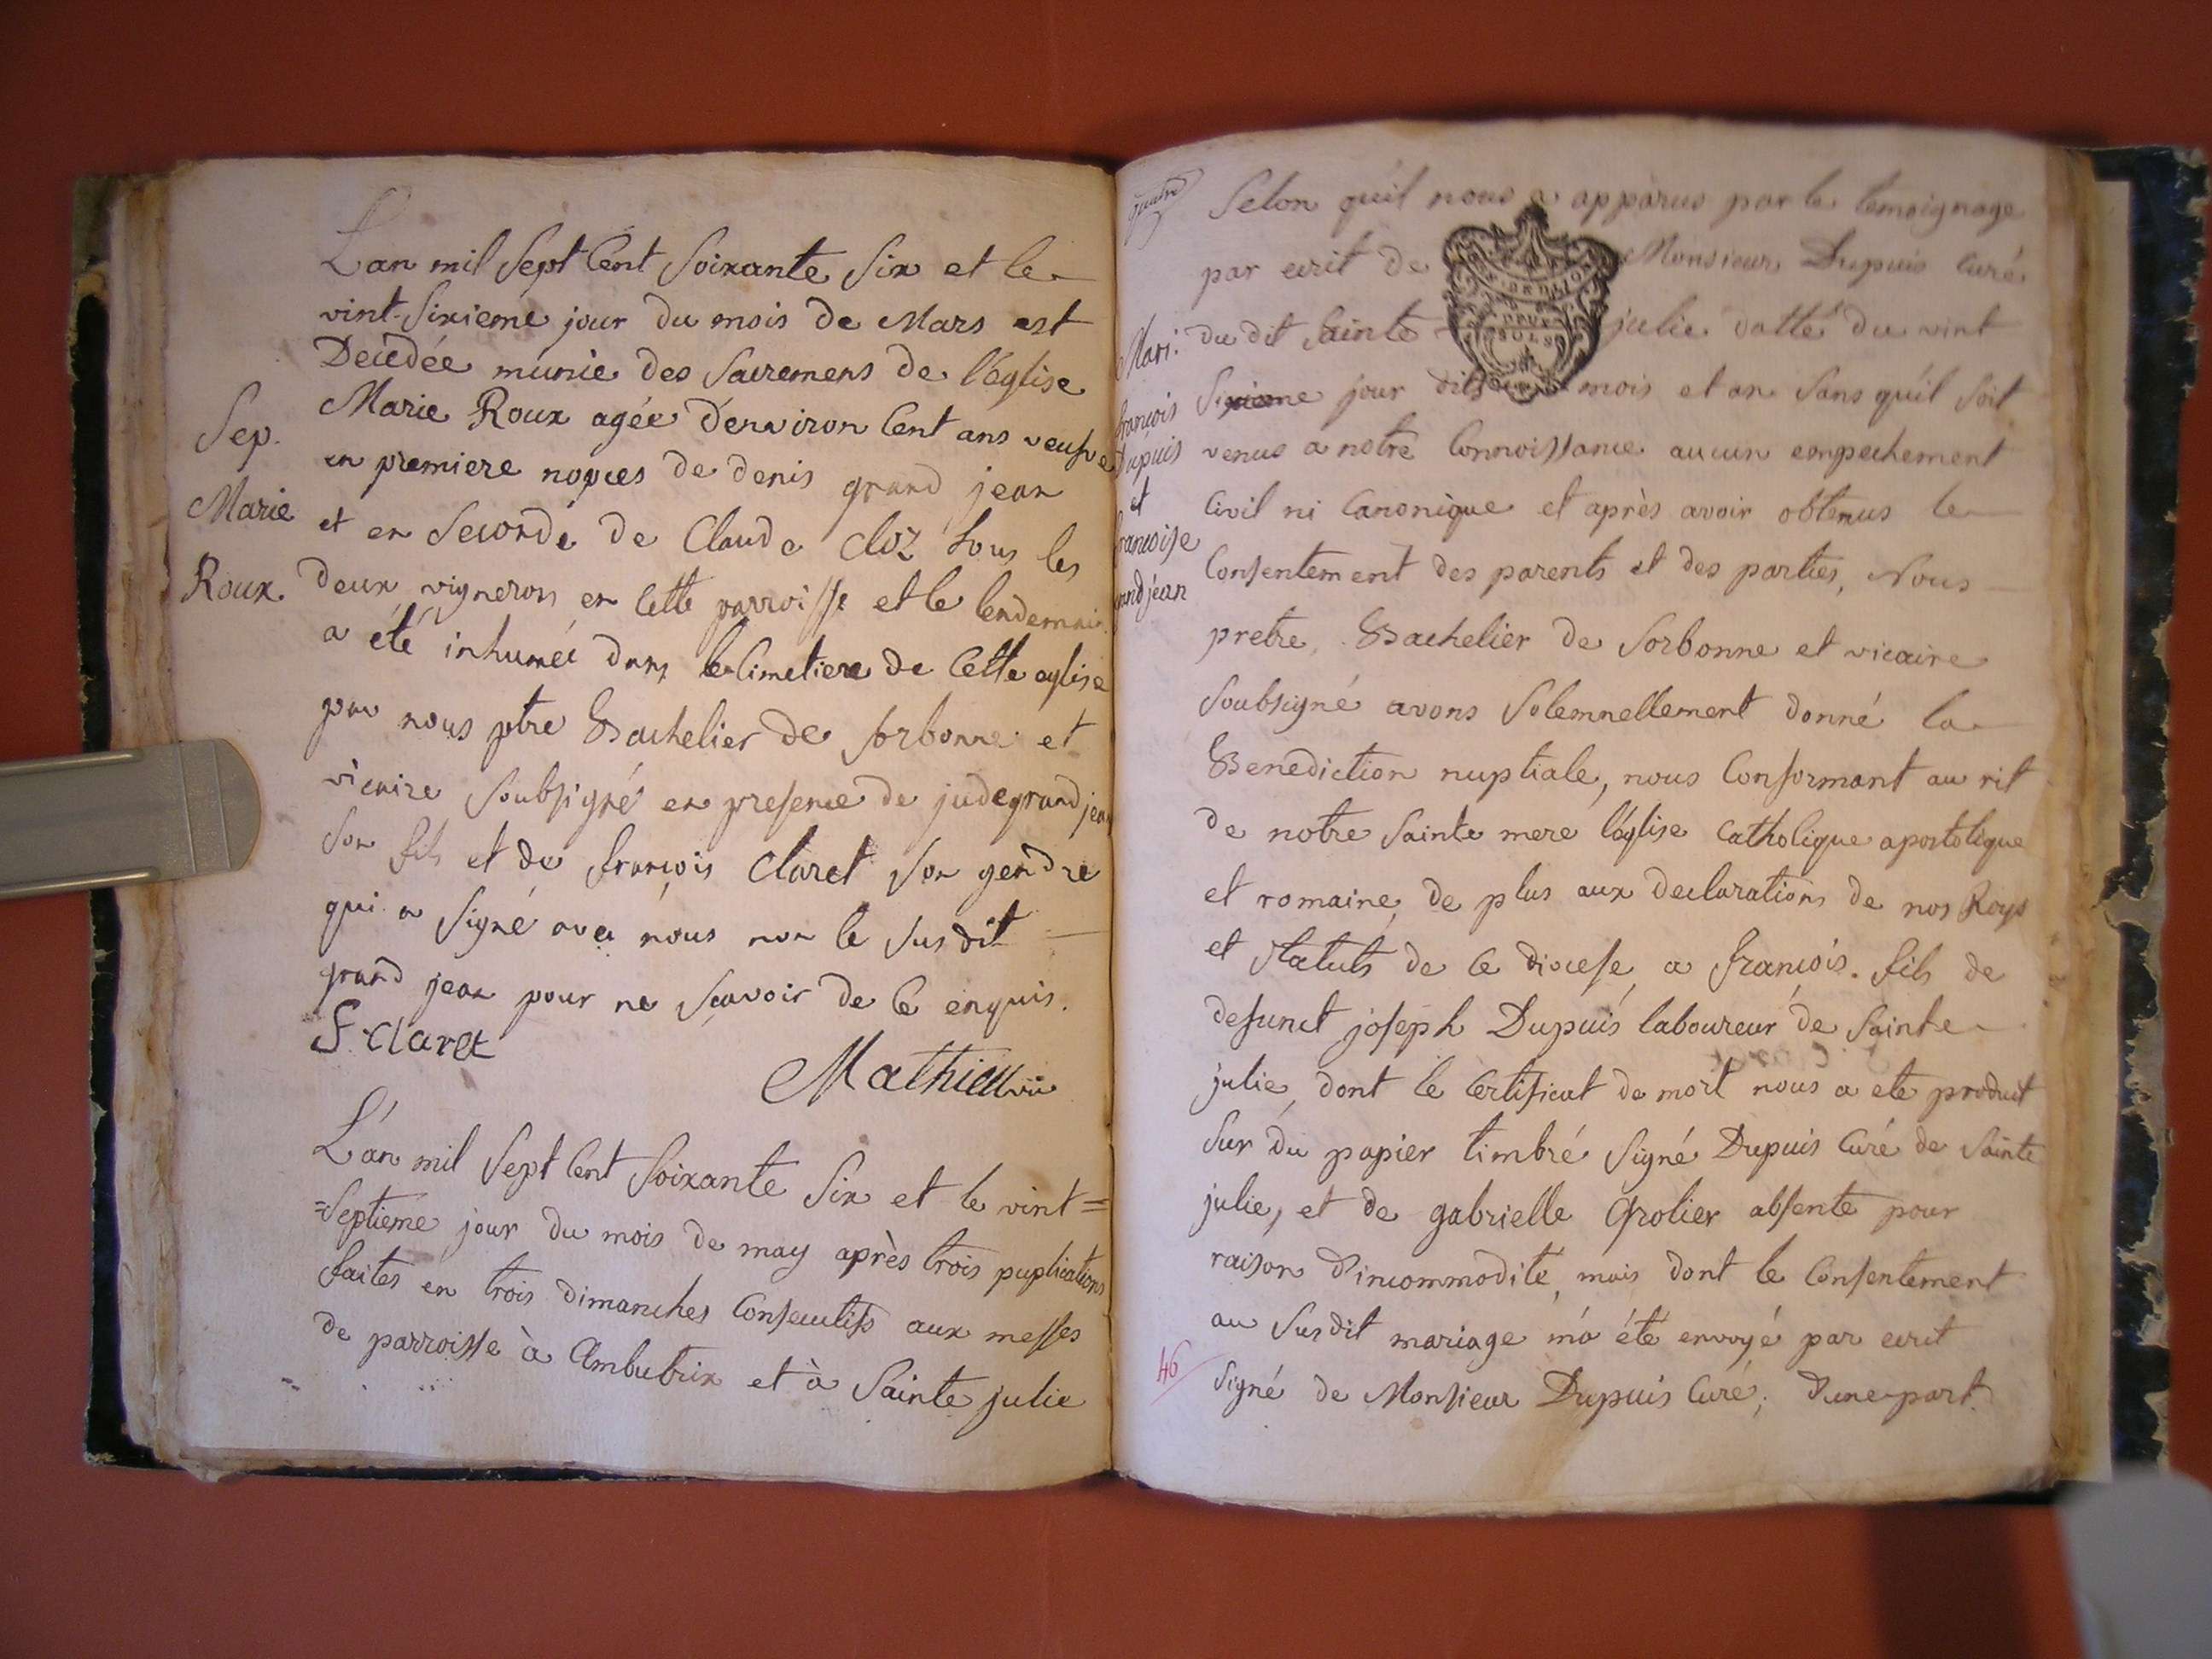 L'an mil Sept Cent Soixante Six et le
vint-Sixieme jour du mois de Mars est
Decédée munie des Sacremens de l'église
Marie Roux agée d'environ Cent ans veufve
en premiere nopces de denis grand jean
et en Seconde de Claude Cloz tous les
deux vignerons en Cette parroisse et le lendemain
a été inhumée dans le Cimetiere de Cette eglise
par nous ptre Bachelier de Sorbonne et
vicaire Soubsigné en presence de jude grand jean
Son fils et de françois Claret Son gendre
qui a Signé avec nous non le Susdit
grand jean pour ne Scavoir de Ce enquis.
F. Claret
Mathieu vic
Sep.
Marie
Roux.
L'an mil Sept Cent Soixante Six et le vint=
=Septieme jour du mois de may après trois puplications
faites en trois dimanches Consecutifs aux messes
de parroisse à Ambutrix et à Sainte julie
quatre
Selon qu'il nous a apparus par le temoignage
par ecrit de Monsieur Dupuis Curé
du dit Sainte julie datté du vint
Sixieme jour dits mois et an Sans qu'il Soit
venus a notre Connoissance aucun empechement
Civil ni Canonique et après avoir obtenus le
Consentement des parents et des parties, Nous
pretre, Bachelier de Sorbonne et vicaire
Soubsigné avons Solemnellement donné la
Benediction nuptiale, nous Conformant au rit
de notre Sainte mere l'église Catholique apostolique
et romaine, de plus aux declarations de nos Roys
et Statuts de Ce diocese, a françois. fils de
defunct joseph Dupuis laboureur de Sainte
julie, dont le Certificat de mort nous a ete produit
Sur du papier timbré Signé Dupuis Curé de Sainte
julie, et de gabrielle Grolier absente pour
raison d'incommodité, mais dont le Consentement
au Susdit mariage m'a été envoyé par ecrit
Signé de Monsieur Dupuis Curé; d'une part.
Mari:
françois
Dupuis
et
francoise
grandjean
46